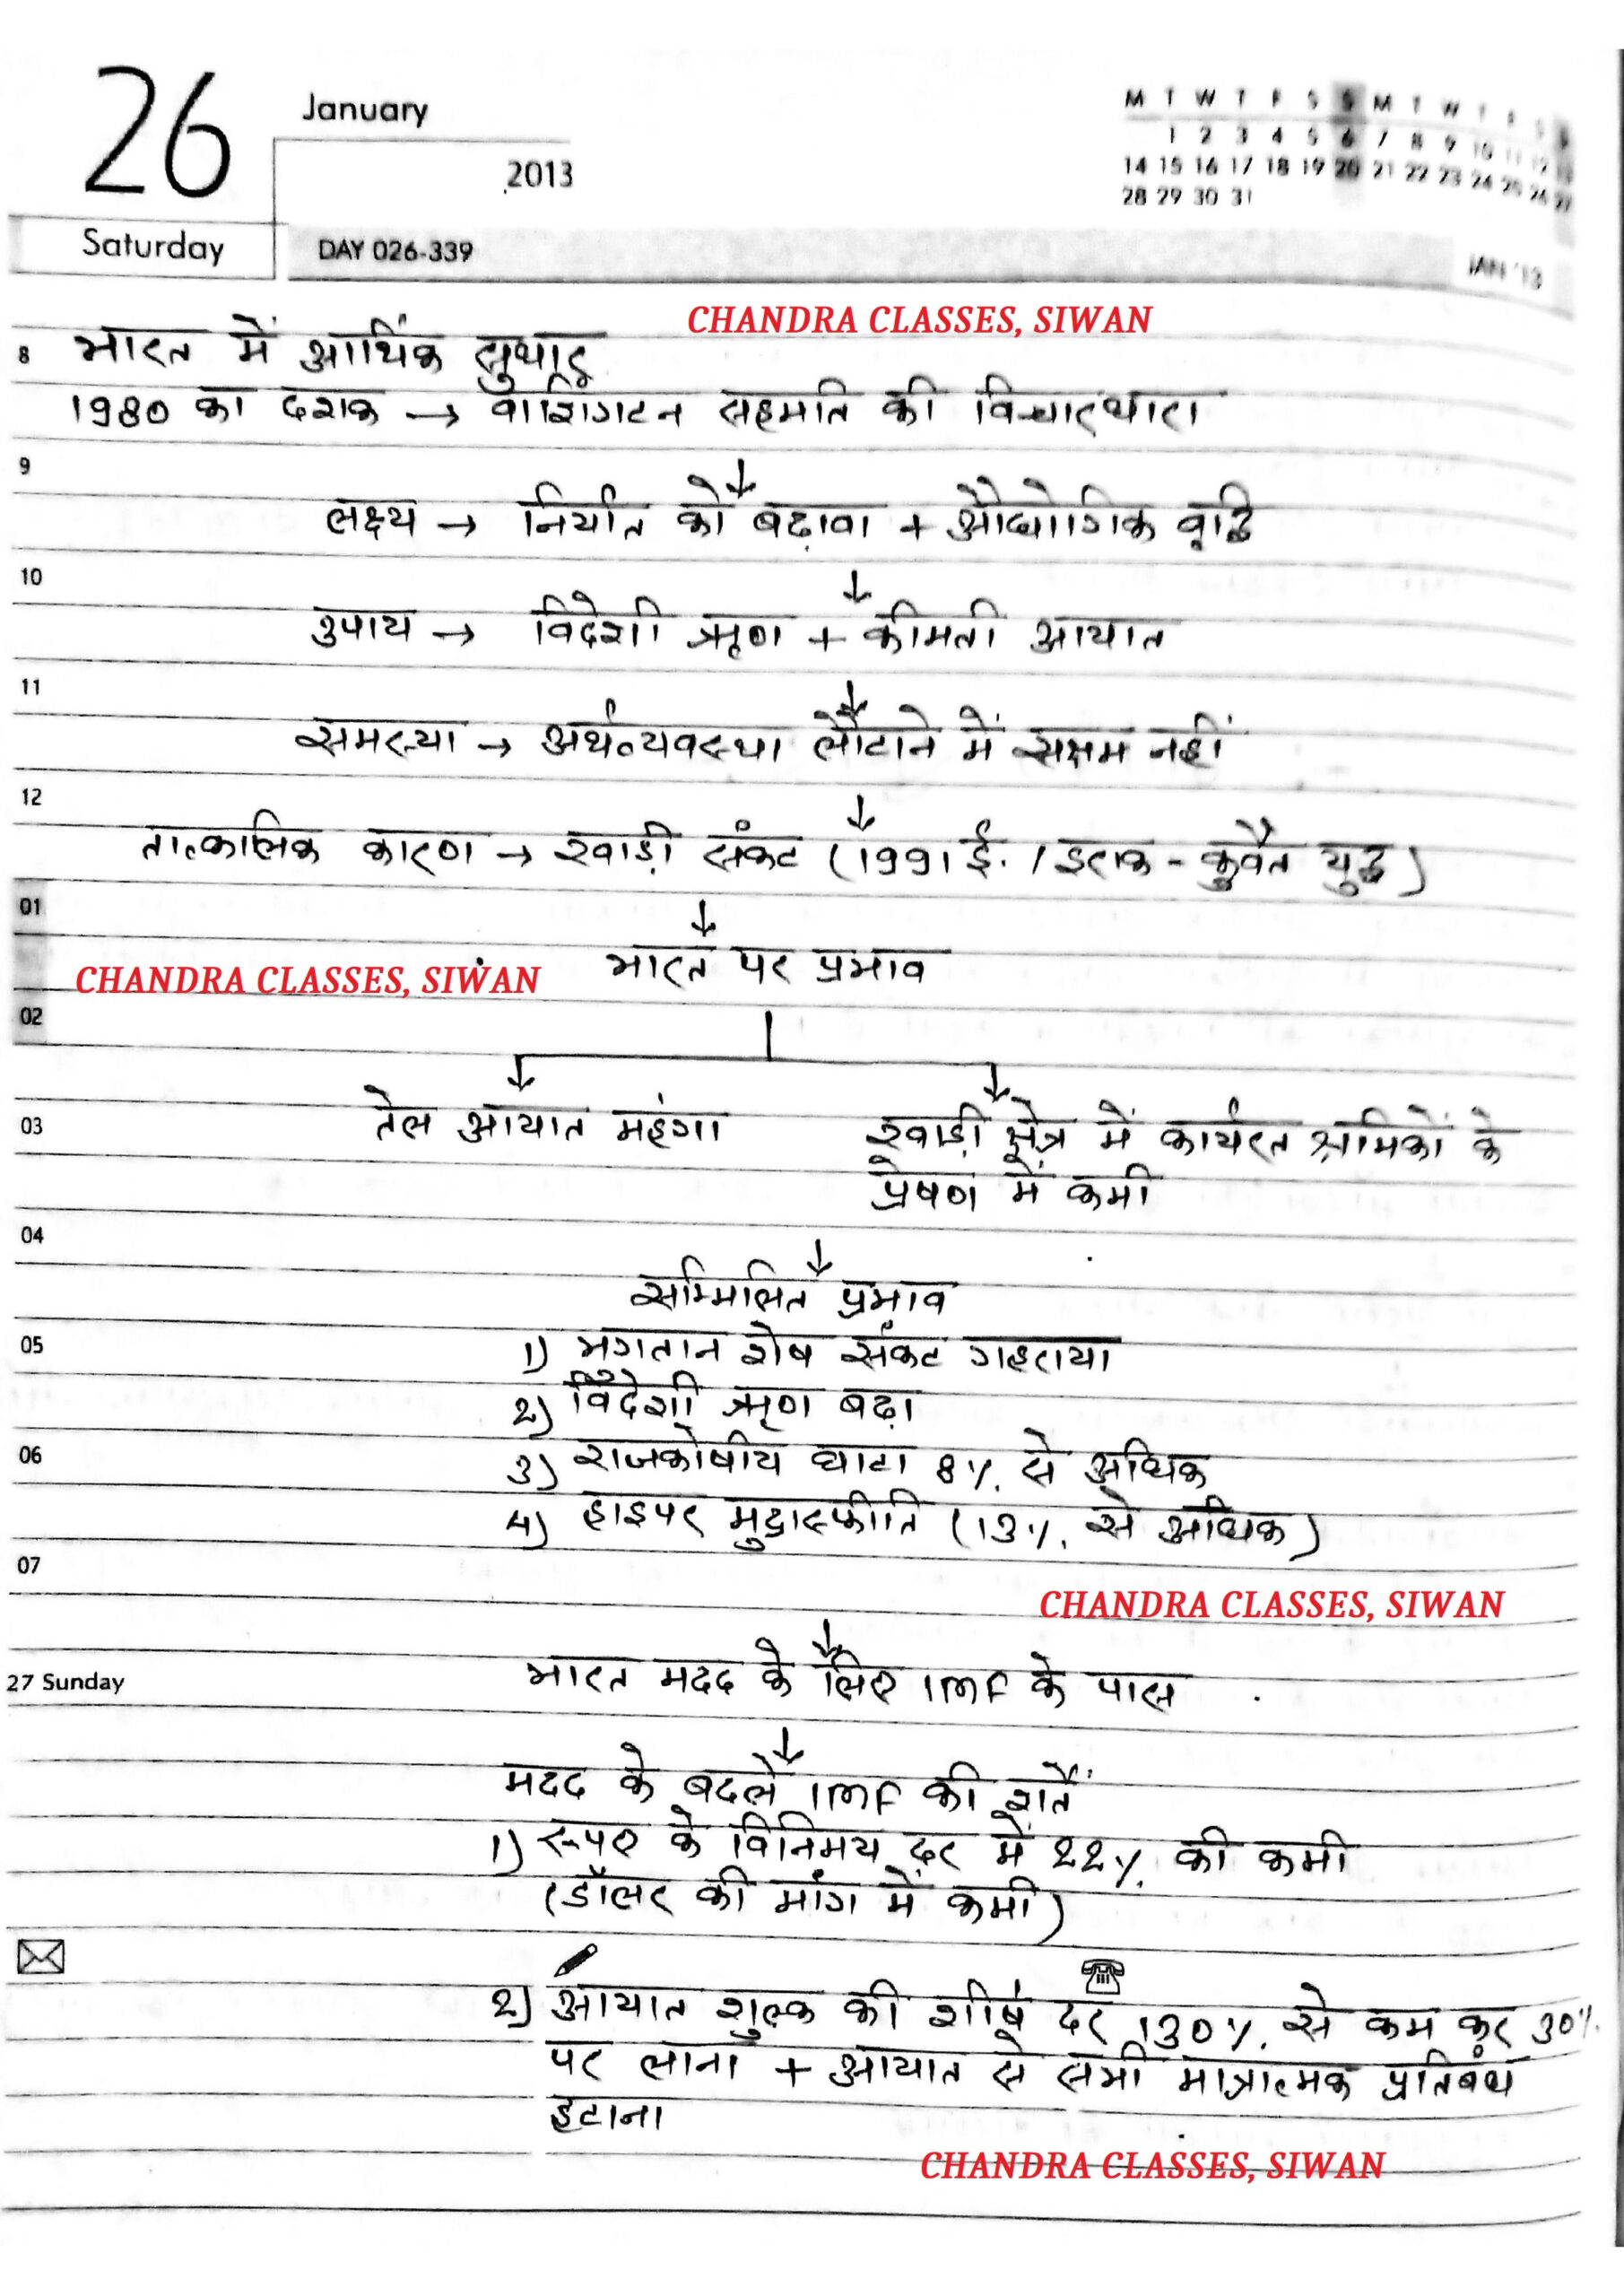 26
January
2013
Saturday
DAY 026-339
M T W T F S S M T W T F S S
1 2 3 4 5 6 7 8 9 10 11 12 13
14 15 16 17 18 19 20 21 22 23 24 25 26 27
28 29 30 31
JAN '13
CHANDRA CLASSES, SIWAN
8 भारत में आर्थिक सुधार
1980 का दशक → वाशिंगटन सहमति की विचारधारा
9
↓
लक्ष्य → निर्यात को बढ़ावा + औद्योगिक वृद्धि
10
↓
उपाय → विदेशी ऋण + कीमती आयात
11
↓
समस्या → अर्थव्यवस्था लौटाने में सक्षम नहीं
12
↓
तात्कालिक कारण → खाड़ी संकट (1991 ई. / इराक - कुवैत युद्ध)
01
↓
भारत पर प्रभाव
CHANDRA CLASSES, SIWAN
02
03 तेल आयात महंगा
खाड़ी क्षेत्र में कार्यरत श्रमिकों के
प्रेषण में कमी
04
↓
सम्मिलित प्रभाव
05 1) भुगतान शेष संकट गहराया
2) विदेशी ऋण बढ़ा
06 3) राजकोषीय घाटा 8% से अधिक
4) हाइपर मुद्रास्फीति (13% से अधिक)
07
CHANDRA CLASSES, SIWAN
↓
27 Sunday
भारत मदद के लिए IMF के पास
↓
मदद के बदले IMF की शर्तें
1) रूपए के विनिमय दर में 22% की कमी
(डॉलर की मांग में कमी)
2) आयात शुल्क की शीर्ष दर 130% से कम कर 30%
पर लाना + आयात से सभी मात्रात्मक प्रतिबंध
हटाना
CHANDRA CLASSES, SIWAN